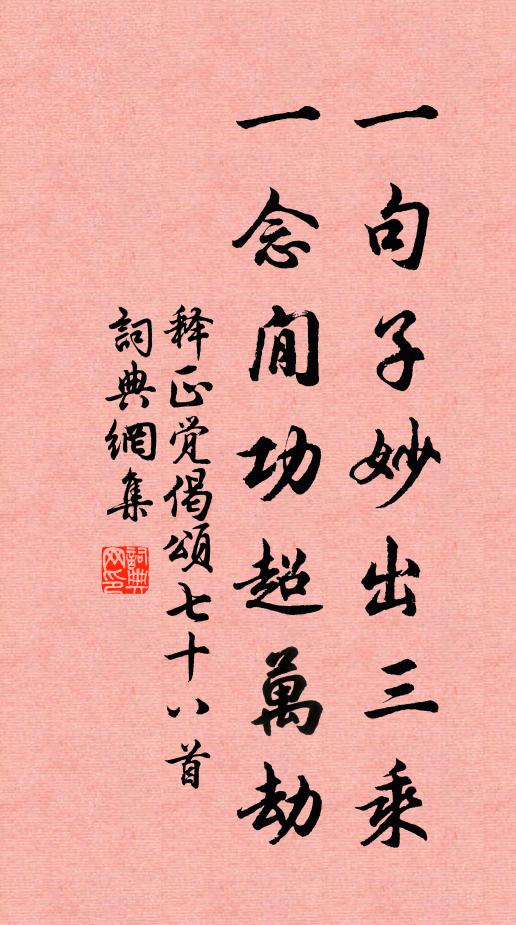 一句子妙出三乘
一念间功超萬劫
释正覚偈頌七十八首
詞典網集
詞典网印